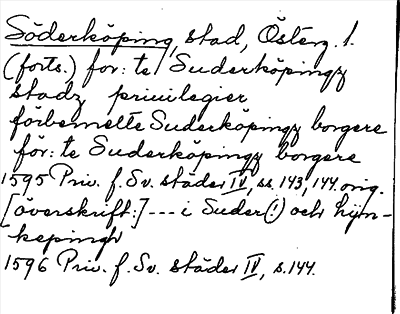 Söderköping, stad, Österg. 1.
(forts.) for: te Suderköpingz
stadz priuilegier
förbemelte Suderköpingz borgere
för: te Suderköpingz borgere
1595 Priv. f. Sv. städer IV, ss. 143, 144 orig.
[överskrift:] --- i Suder(!) och Lijn-
kepingh
1596 Priv. f. Sv. städer IV, s. 144.